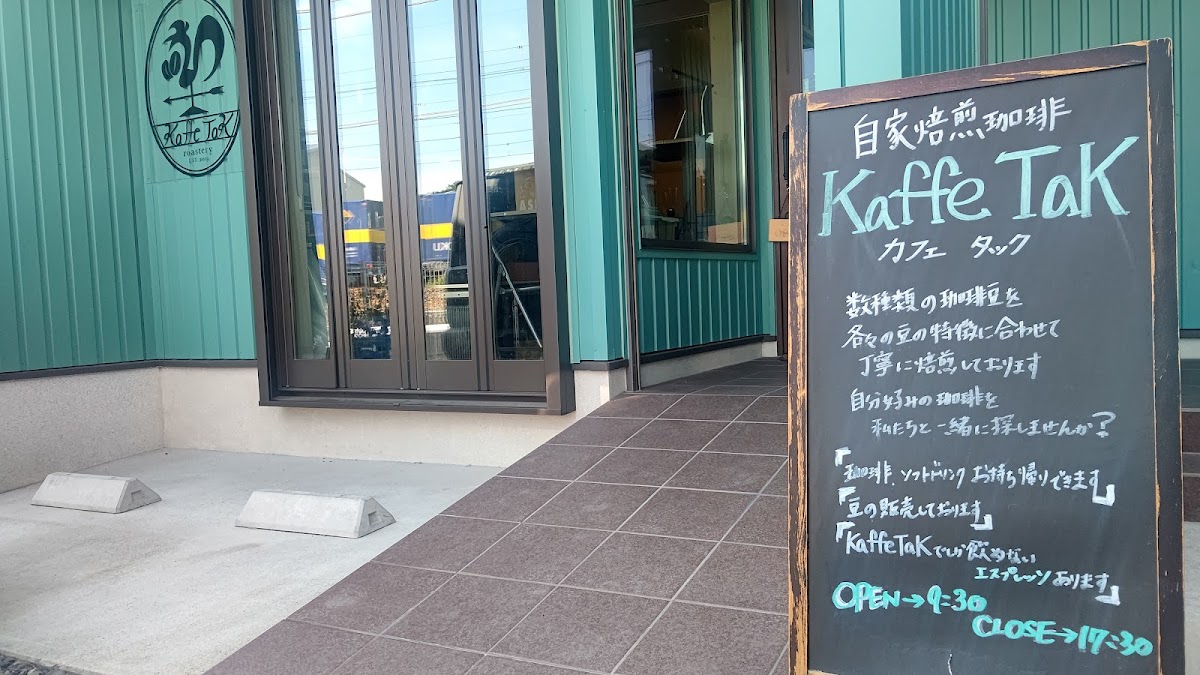 Kaffe TaK
roastery
自家焙煎珈琲
Kaffe TaK
カフェ タック
数種類の珈琲豆を
各々の豆の特徴に合わせて
丁寧に焙煎しております
自分好みの珈琲を
私たちと一緒に探しませんか?
「珈琲、ソフトドリンク お持ち帰りできます」
「豆の販売しております」
「KaffeTaKでしか飲めない
エスプレッソあります」
OPEN→9:30
CLOSE→17:30